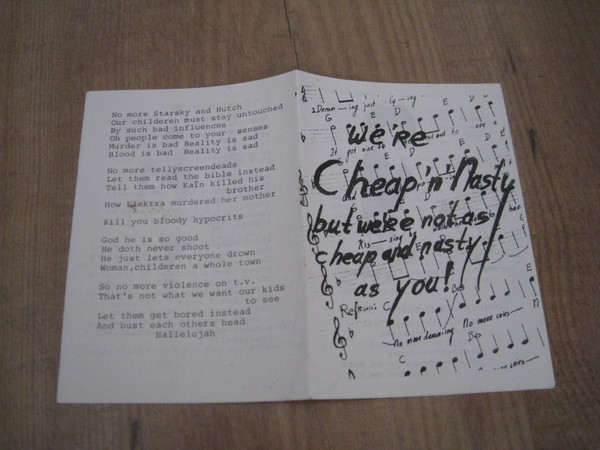 No more Starsky and Hutch
Our childeren must stay untouched
By such bad influences
Oh people come to your senses
Murder is bad Reality is sad
Blood is bad Reality is sad
No more tellyscreendeads
Let them read the bible instead
Tell them how Kain killed his
brother
How Elektra murdered her mother
Kill you bloody hypocrits
God he is so good
He doth never shoot
He just lets everyone drown
Woman,childeren a whole town
So no more violence on t.v.
That's not what we want our kids
to see
Let them get bored instead
And bust each others head
Hallelujah
ing just ly-ing
G D E D
We're
Cheap 'n' Nasty
but we're not as
cheap and nasty
as you!
Refrain: C Bes E
No more demm-ing No more cries
C Bes
cries